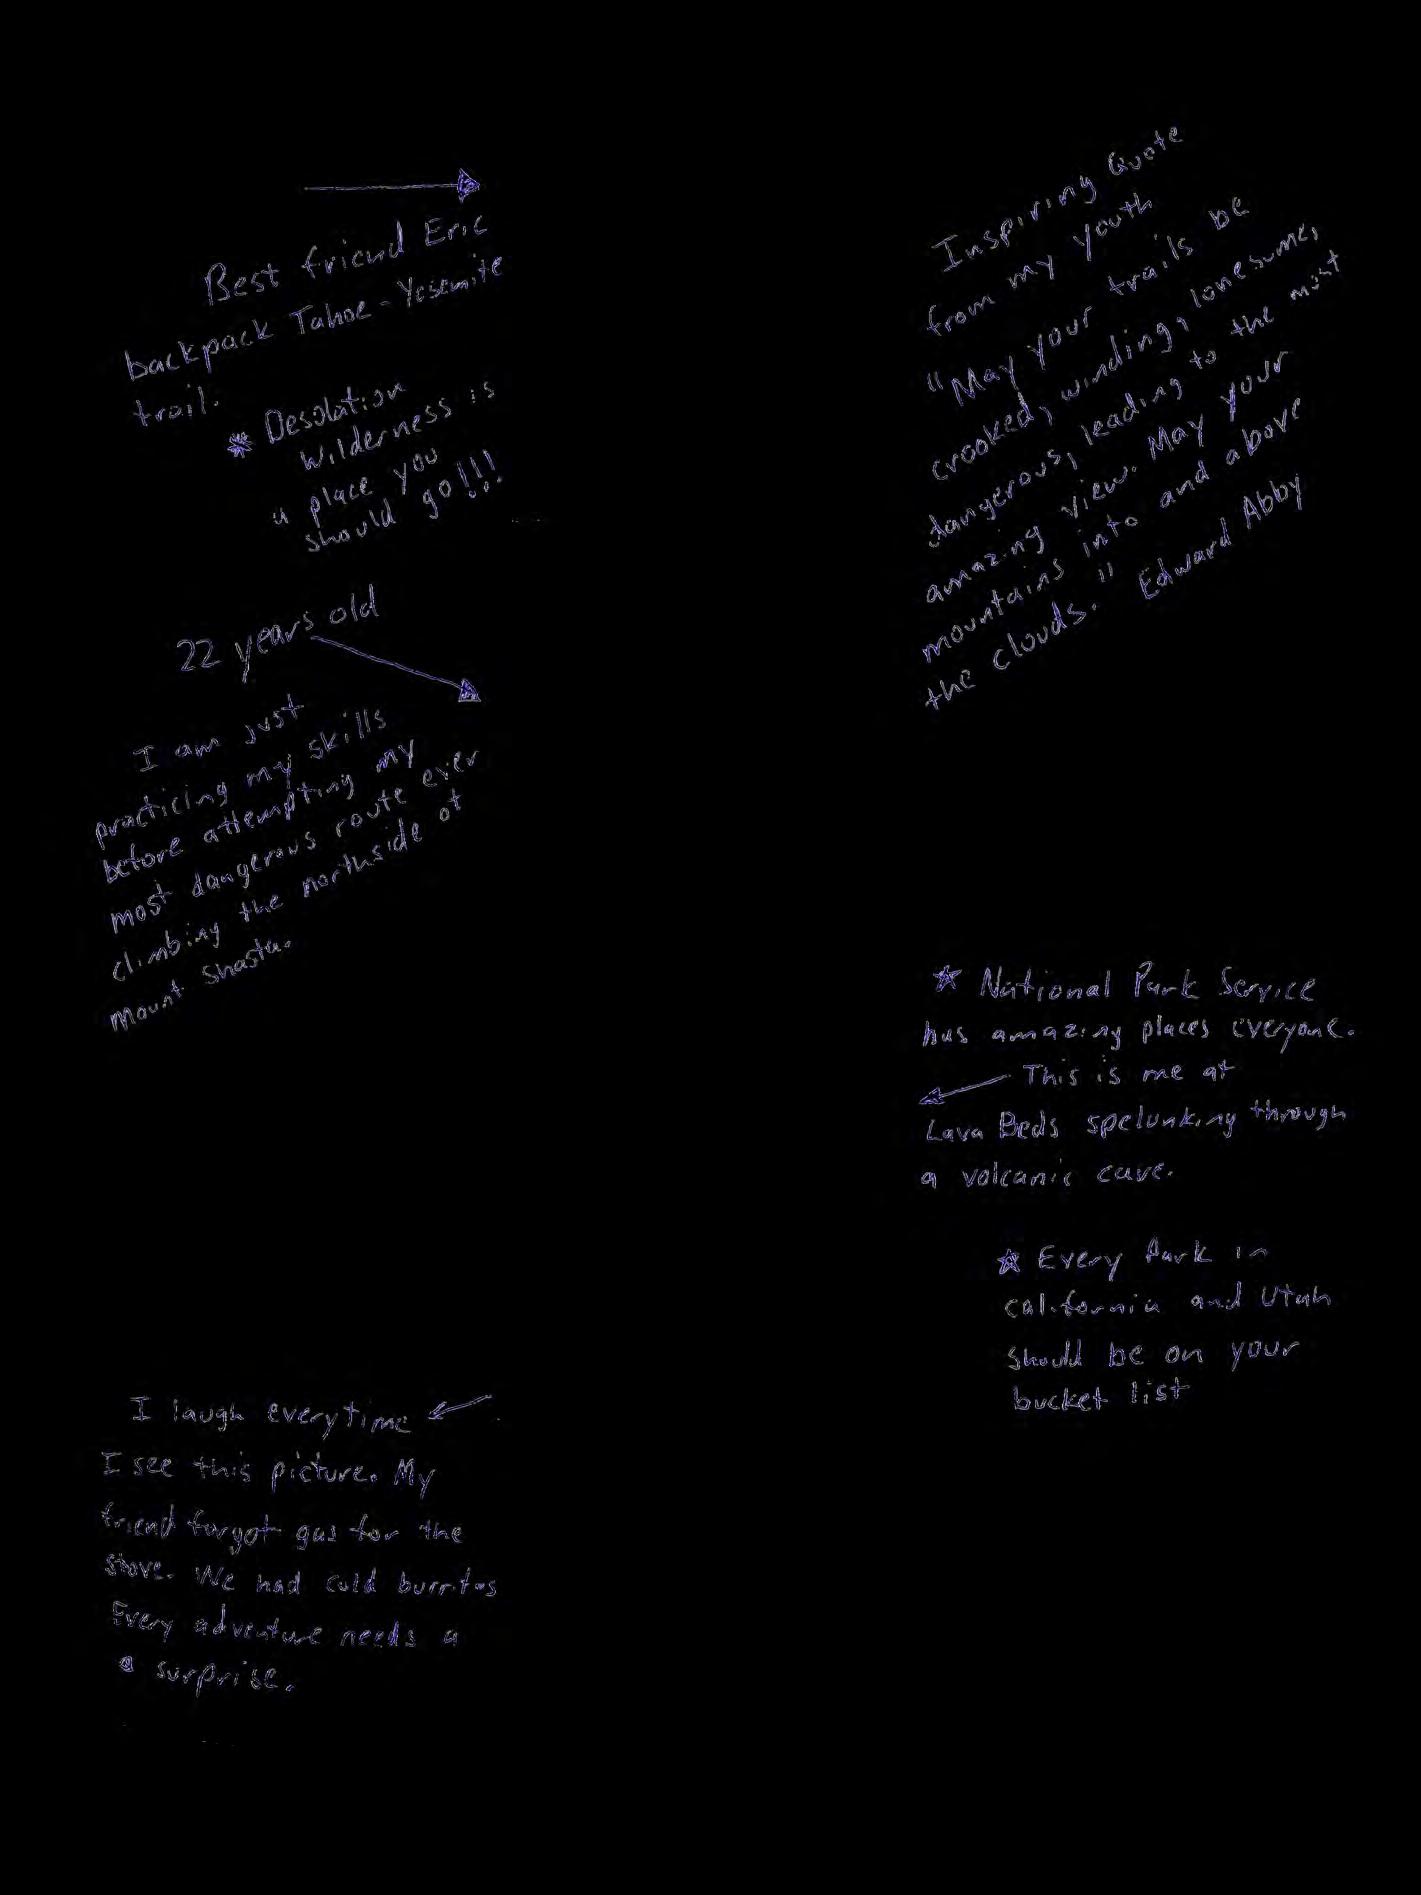 Best friend Eric
backpack Tahoe - Yosemite
trail.
* Desolation
Wilderness is
a place you
should go!!!
22 years old
I am just
practicing my skills
before attempting my
most dangerous route ever
climbing the northside of
Mount Shasta.
I laugh everytime
I see this picture. My
friend forgot gas for the
stove. We had cold burritos
Every adventure needs a
a surprise.
Inspiring Quote
from my youth
"May your trails be
crooked, winding, lonesome,
dangerous, leading to the most
amazing view. May your
mountains into and above
the clouds." Edward Abby
☆ National Park Service
has amazing places everyone.
This is me at
Lava Beds spelunking through
a volcanic cave.
☆ Every Park in
california and Utah
should be on your
bucket list